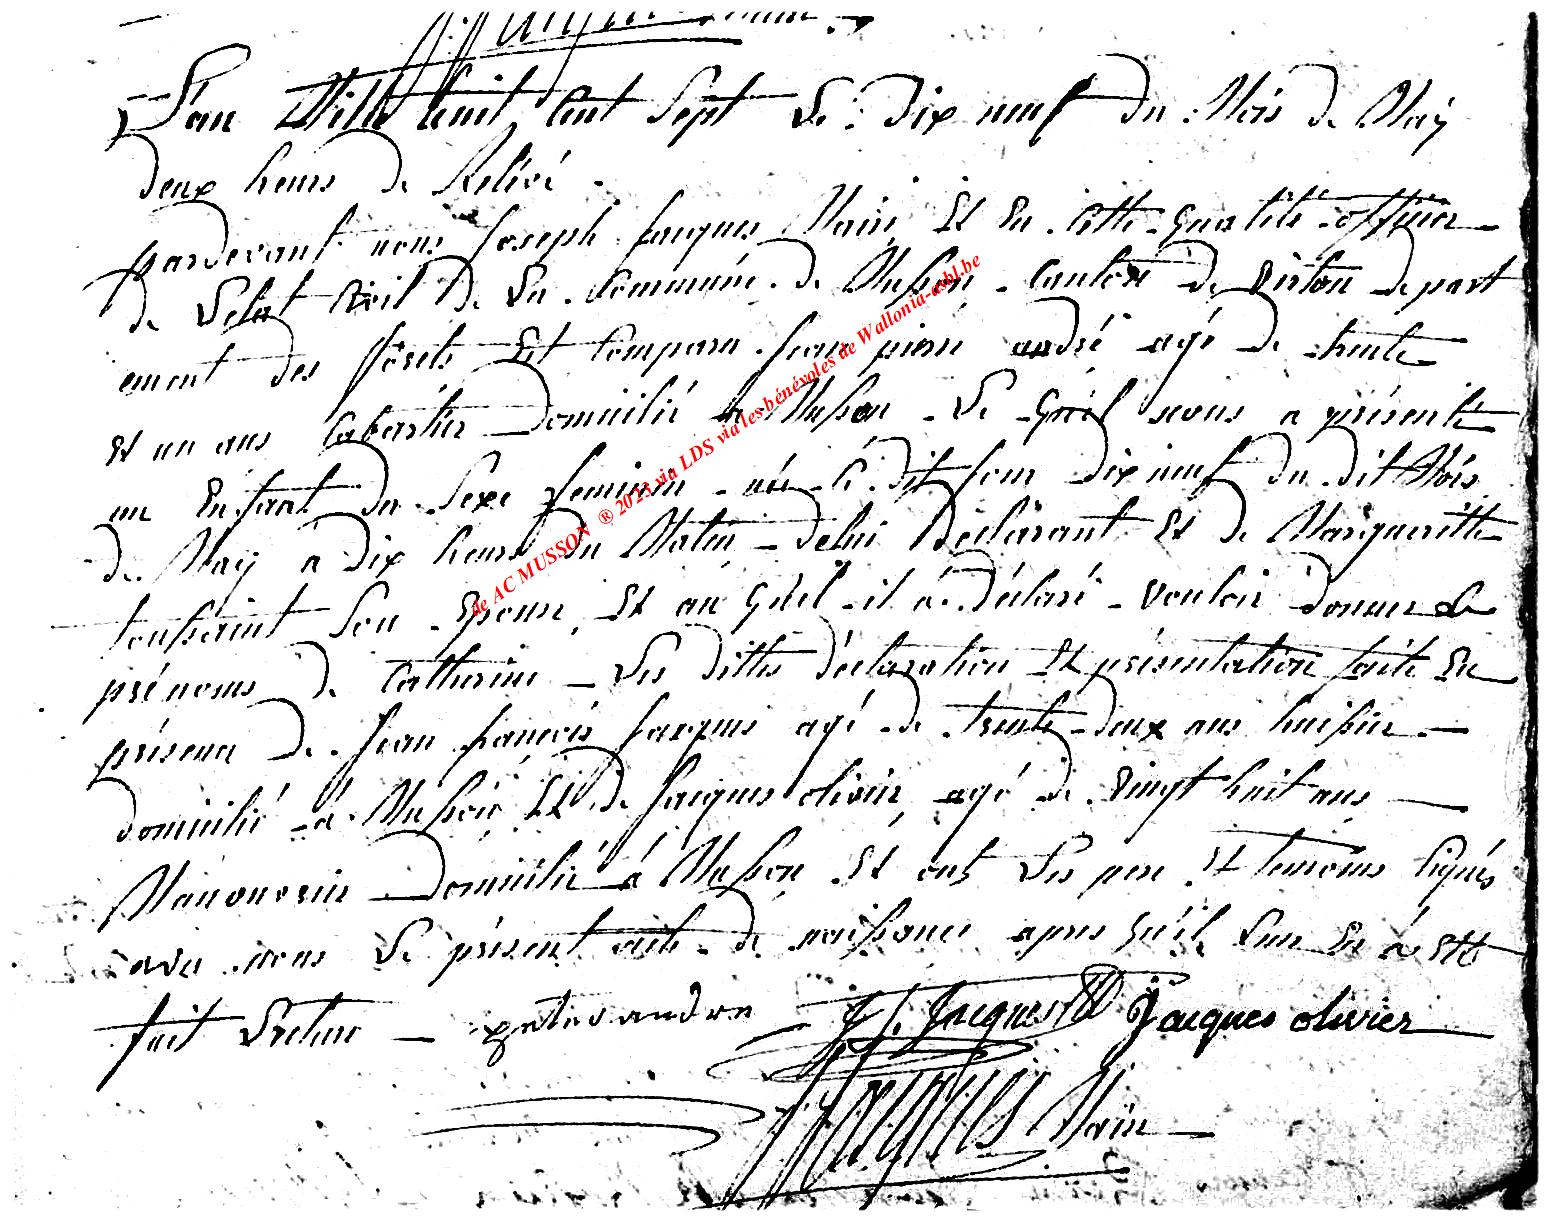 L'an Mille huit Cent Sept Le Dix neuf du Mois de May
deux heurs de Relévé.
pardevant nous Joseph Jacques Maire Et En Cette Qualité officier
de L'etat Civil de La Commune de Musson Canton de Virton depart
ement des forêts Est Comparu Jean pierre andré agé de trente
et un ans Cabartier Domicilié a Musson Le Quel nous a présenté
un Enfant du Sexe feminin née Cè dit Jour Dix neuf du dit Mois
de May a dix heurs du Matin de lui Declarant Et de Margueritte
toussaint Son Epouse, Et au Quel il a déclaré vouloir Donner Le
prénoms de Catherine Les dittes déclaration Et présentation faite En
présence de Jean françois Jacques agé de trente deux ans huissier
domicilié à Musson Et de Jacques olivier, agé de vingt huit ans
Manouvrier Domicilié à Musson Et ont Les pere Et temoins Signés
avec nous Le présent acte de naissance apres Qu'il Leur En à Etté
fait Lecture andre J f Jacques Jacques olivier
J J Jacques Maire
de AC MUSSON ® 2023 via LDS via les bénévoles de Wallonia-asbl.be